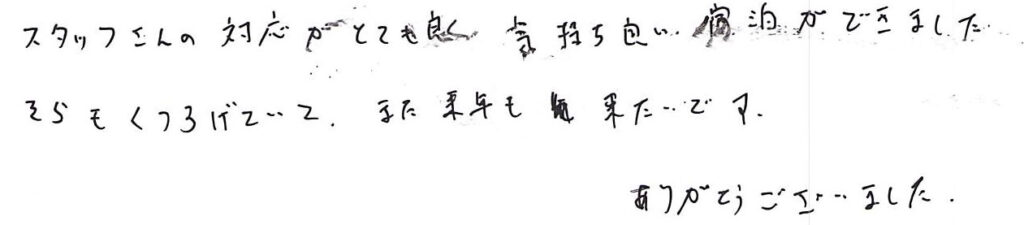 スタッフさんの対応がとても良く 気持ち良い宿泊ができました
そらもくつろげていて、また来年も 来たいです。
ありがとうございました。